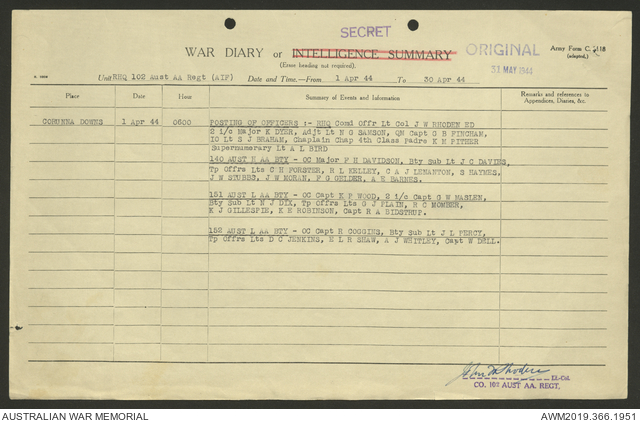 SECRET
WAR DIARY or INTELLIGENCE SUMMARY
(Erase heading not required).
ORIGINAL
31 MAY 1944
Army Form C. 2118
(adapted.)
Unit RHQ 102 Aust AA Regt (AIF) Date and Time.—From 1 Apr 44 To 30 Apr 44
Place Date Hour Summary of Events and Information Remarks and references to
Appendices, Diaries, &c.
COBUNNA DOWNS 1 Apr 44 0600 POSTING OF OFFICERS :- RHQ Comd Offr Lt Col J W RHODEN ED
2 i/c Major K DYER, Adjt Lt N G SAMSON, QM Capt S B FINCHAM,
IO Lt S J BRAHAM, Chaplain Chap 4th Class Padre K M PITHER
Supernumerary Lt A L BIRD
140 AUST H AA BTY - OC Major P H DAVIDSON, Bty Sub Lt J C DAVIES,
Tp Offrs Lts C H FORSTER, R L KELLEY, C A J LEMANTON, S HAYMES,
J W STUBBS, J W MORAN, F G GELDER, A E BARNES.
151 AUST L AA BTY - OC Capt K P WOOD, 2 i/c Capt G W MASLEN,
Bty Sub Lt N J DIX, Tp Offrs Lts G J PLAIN, R C MOMBER,
K J GILLESPIE, K H ROBINSON, Capt R A BIDSTRUP.
152 AUST L AA BTY - OC Capt R COGGINS, Bty Sub Lt J L PERCY,
Tp Offrs Lts D C JENKINS, E L R SHAW, A J WHITLEY, Capt W DELL.
Lt-Col.
CO. 102 AUST AA. REGT,
AUSTRALIAN WAR MEMORIAL AWM2019.366.1951